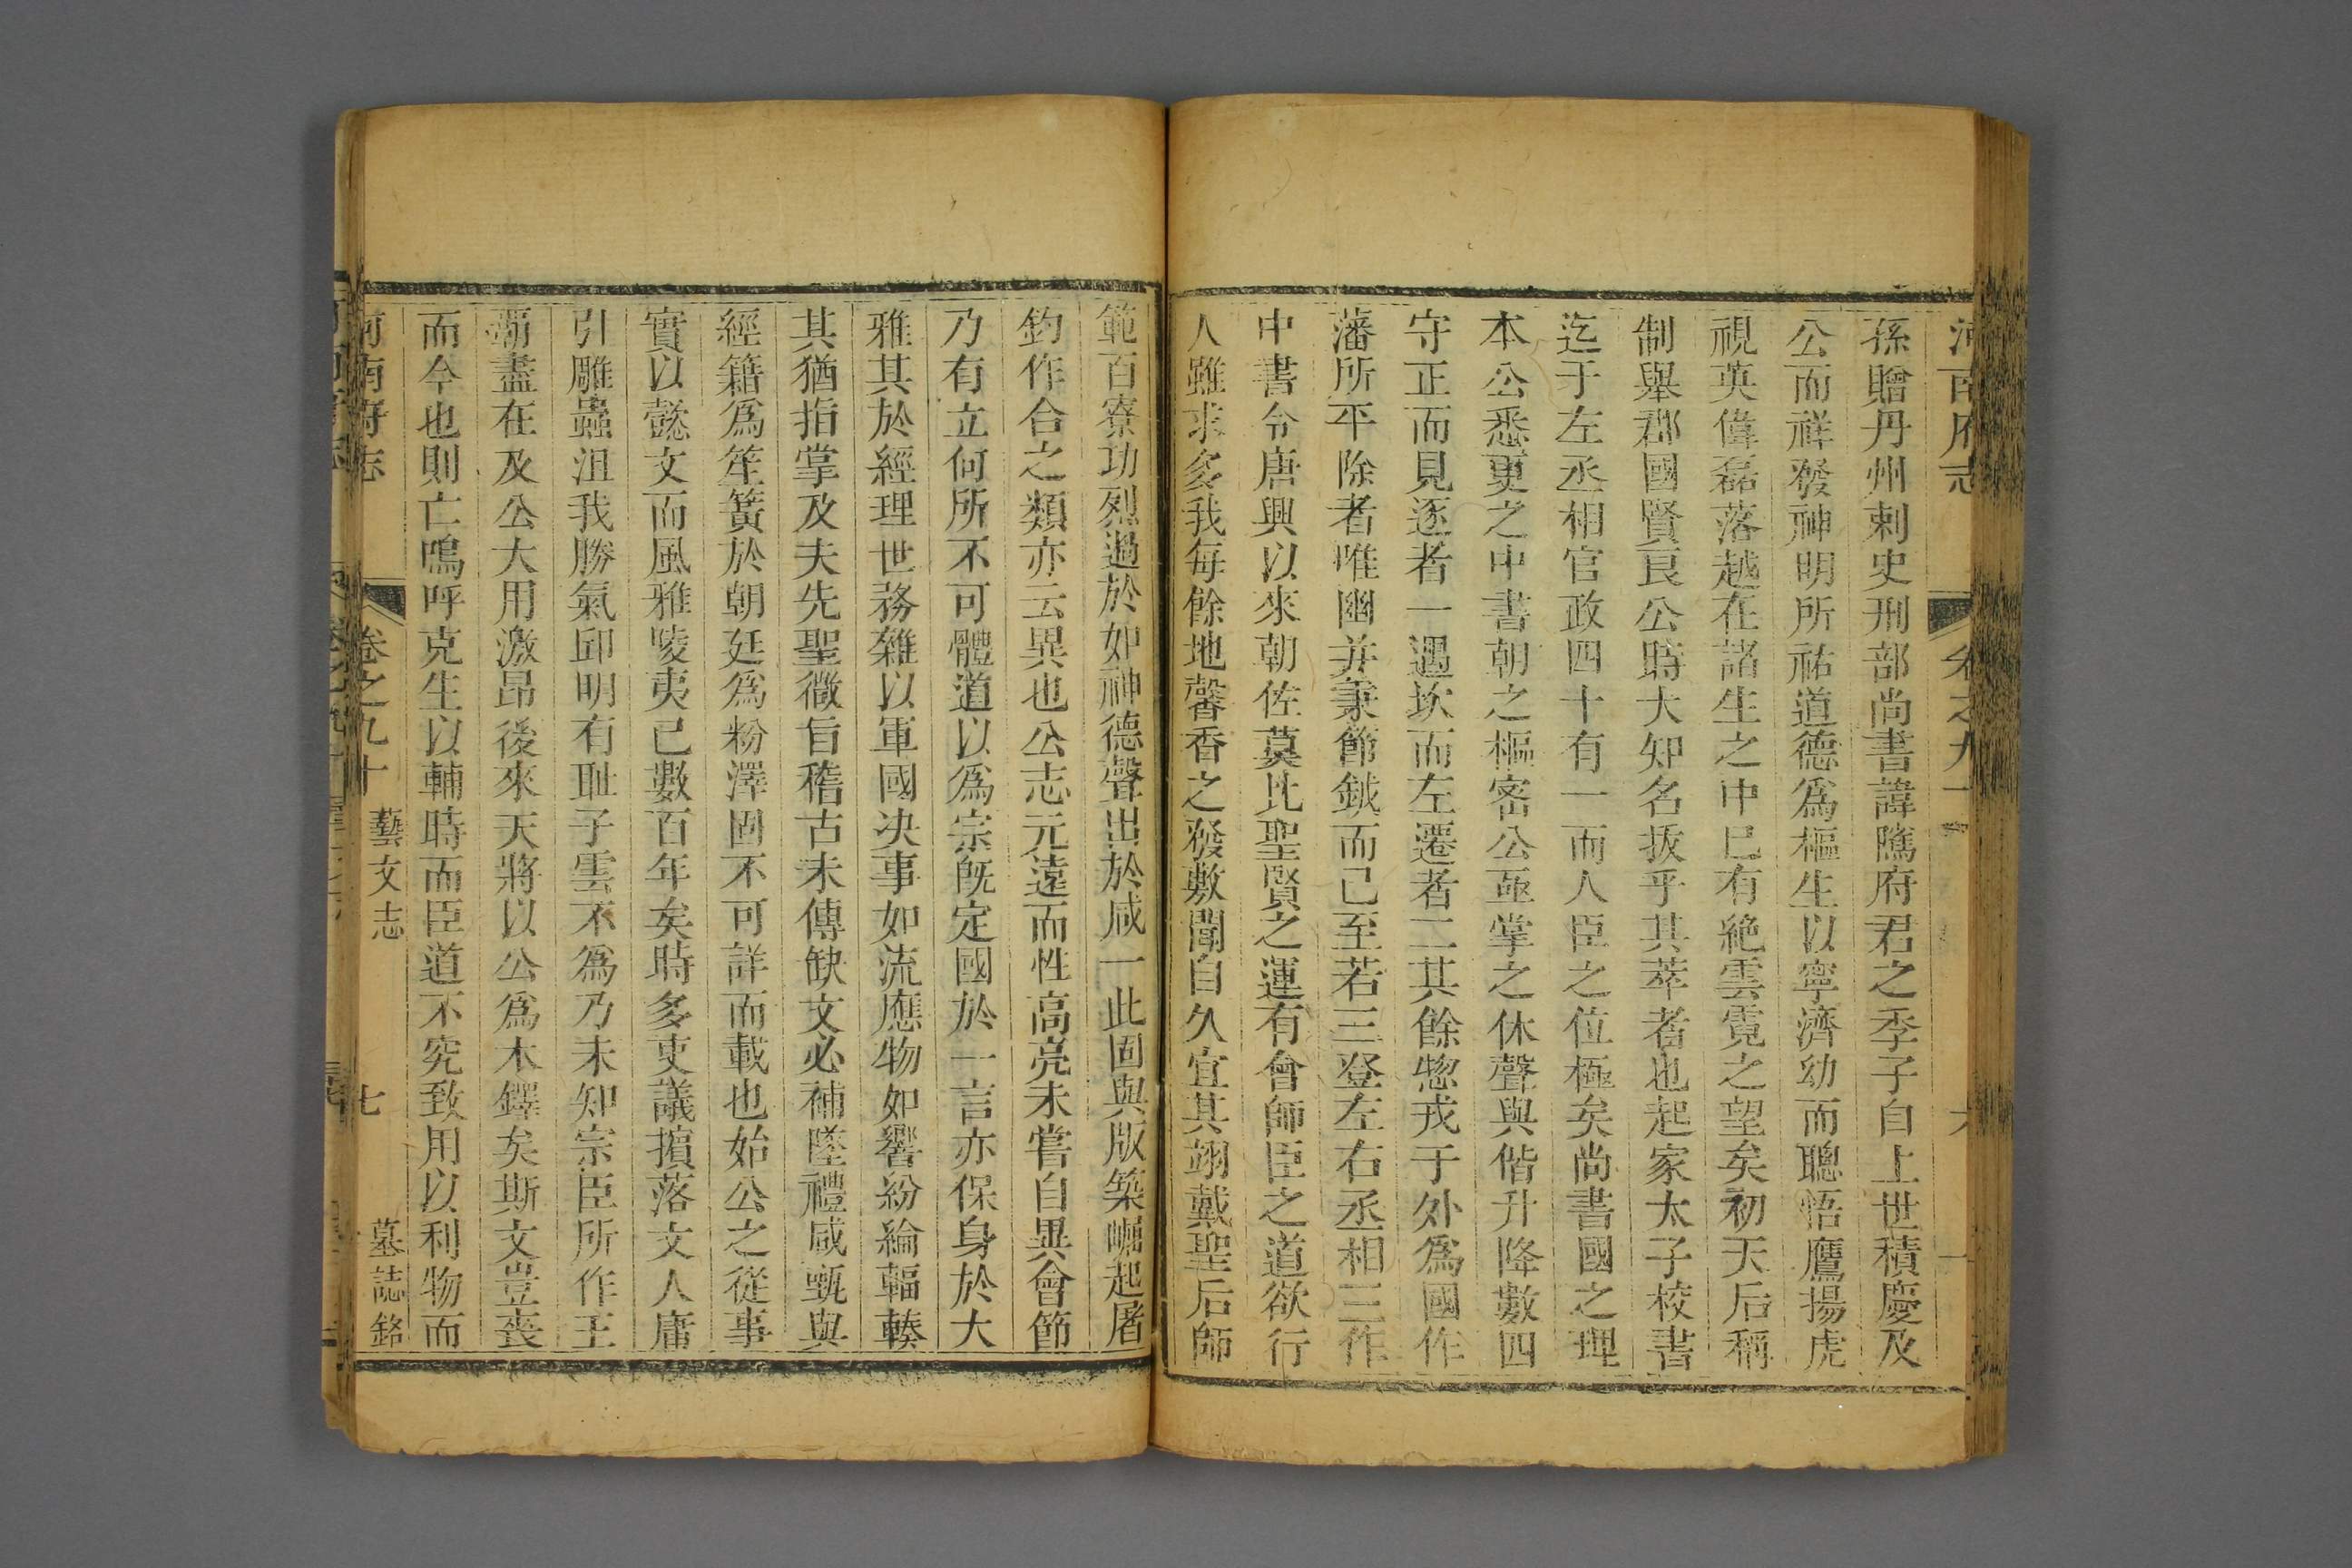 孫贈丹州刺史刑部尚書諱隲府君之季子自上世積慶及
公而祥發神明所祐道德爲樞生以寧濟幼而聰悟鷹揚虎
視英偉磊落越在諸生之中已有絶雲霓之望矣初天后稱
制舉郡國賢良公時大知名拔乎其萃者也起家太子校書
迄于左丞相官政四十有一而人臣之位極矣尚書國之理
本公悉更之中書朝之樞密公亟掌之休聲與偕升降數四
守正而見逐者一遇坎而左遷者二其餘惣戎于外爲國作
藩所平除者唯幽并秉節鉞而已至若三登左右丞相三作
中書令唐興以來朝佐莫比聖賢之運有會師臣之道欲行
人雖求多我每餘地馨香之發敷聞自久宜其翊戴聖后師
範百寮功烈過於如神德聲出於咸一此固與版築崛起屠
釣作合之類亦云異也公志元遠而性高亮未嘗自異會節
乃有立何所不可體道以爲宗旣定國於一言亦保身於大
雅其於經理世務雜以軍國决事如流應物如響紛綸輻輳
其猶指掌及夫先聖徵旨稽古未傳缺文必補墜禮咸甄與
經籍爲笙簧於朝廷爲粉澤固不可詳而載也始公之從事
實以懿文而風雅陵夷已數百年矣時多吏議擯落文人庸
引雕蟲沮我勝氣邱明有耻子雲不爲乃未知宗臣所作王
霸盡在及公大用激昂後來天將以公爲木鐸矣斯文豈喪
而今也則亡嗚呼克生以輔時而臣道不究致用以利物而
河南府志 卷之九十 藝文志 七 墓誌銘